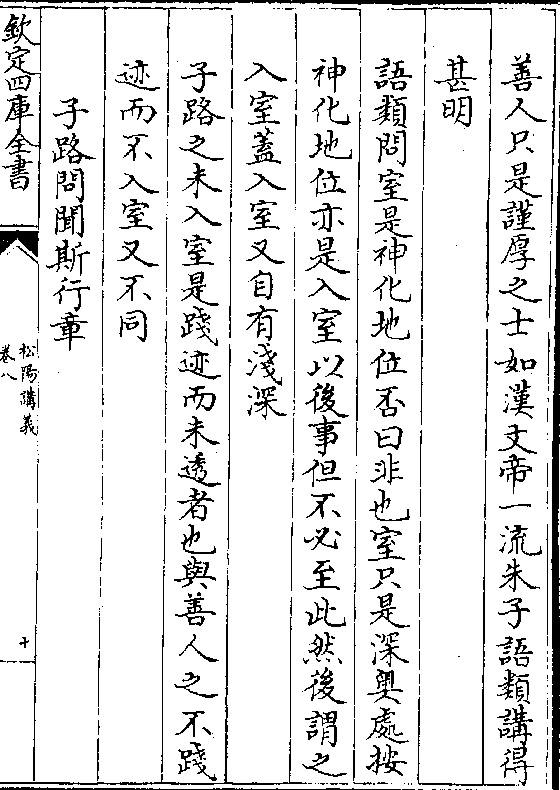 善人只是謹厚之士如漢文帝一流朱子語類講得
甚明
語類問室是神化地位否曰非也室只是深奥處按
神化地位亦是入室以後事但不必至此然後謂之
入室蓋入室又自有淺深
子路之未入室是踐迹而未透者也與善人之不踐
迹而不入室又不同
子路問聞斯行章
欽定四庫全書
松陽講義
卷八
十